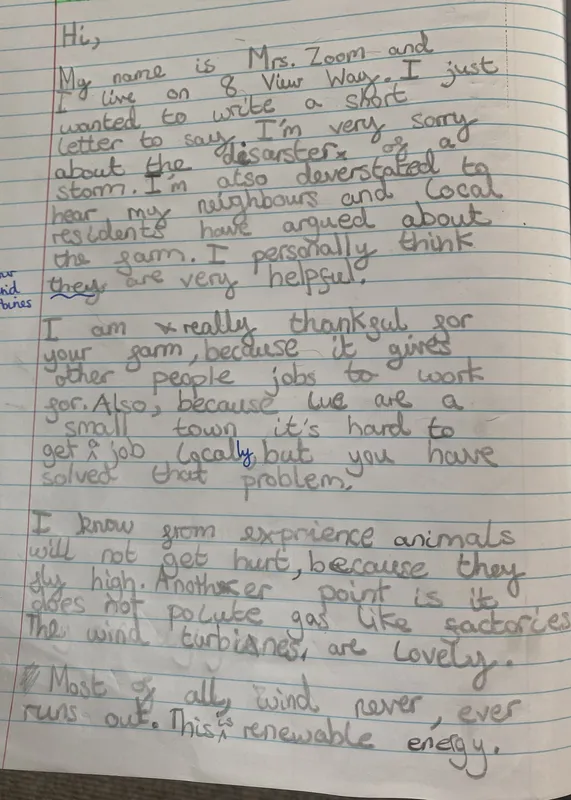 Hi,
My name is Mrs. Zoom and
I live on 8 View Way. I just
wanted to write a short
letter to say I'm very sorry
about the disarster of a
storm. I'm also deverstated to
hear my neighbours and local
residents have argued about
the farm. I personally think
they are very helpful.
ur
nd
bines
I am really thankful for
your farm, because it gives
other people jobs to work
for. Also, because we are a
small town it's hard to
get a job locally, but you have
solved that problem.
I know from exprience animals
will not get hurt, because they
fly high. Another point is it
does not polute gas like factories
The wind turbines, are lovely.
Most of ally wind never, ever
runs out. This is renewable energy.